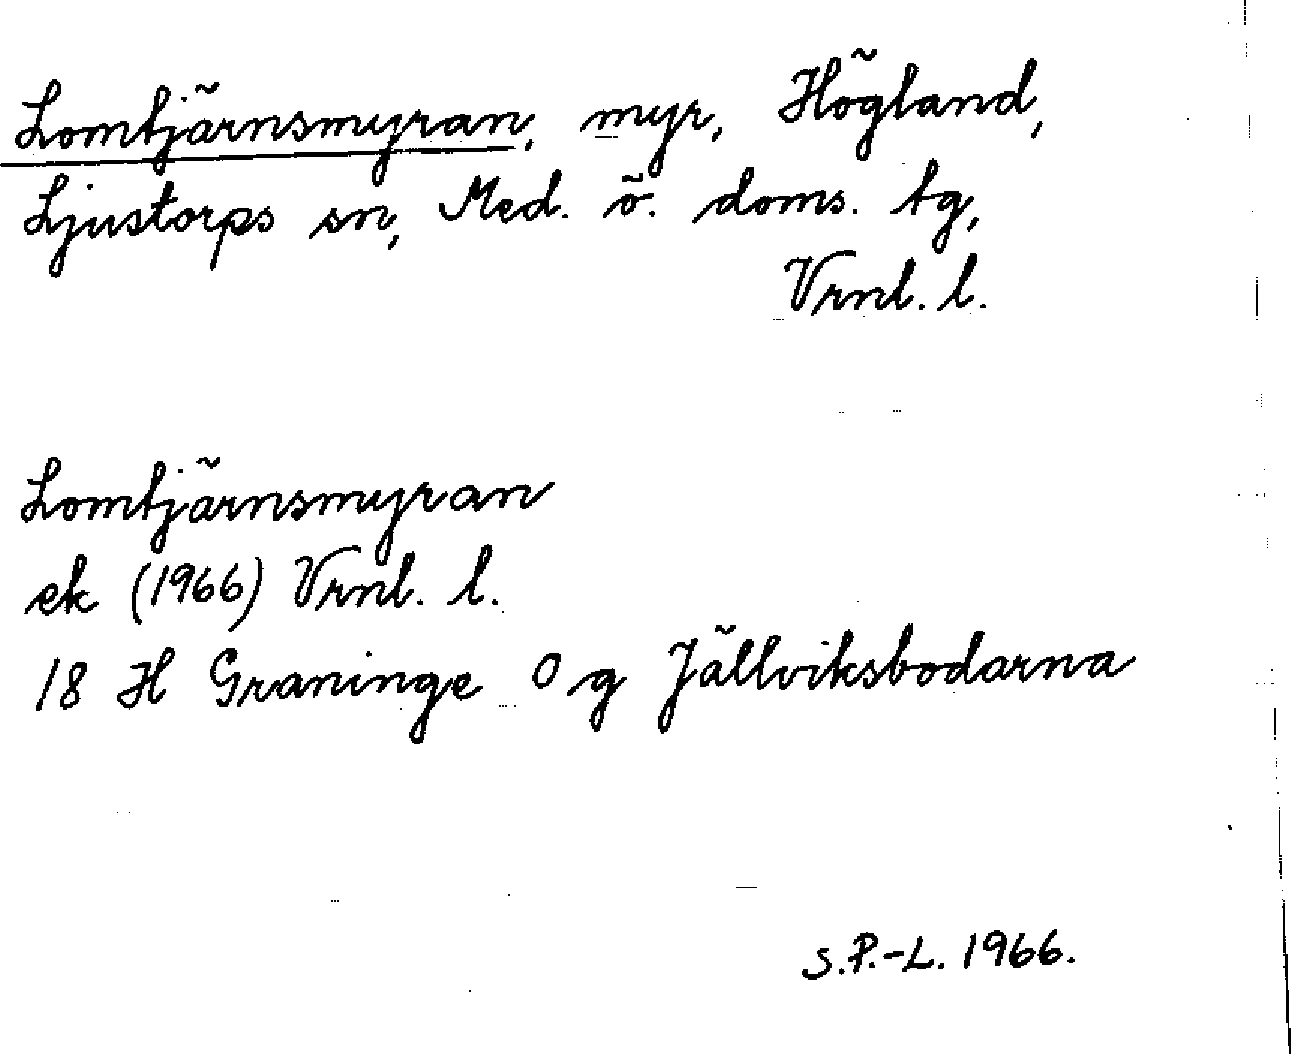 Lomtjärnsmyran, myr, Högland,
Ljustorps sn, Med. ö. doms. tg,
Vrnl. l.
Lomtjärnsmyran
ek (1966) Vrnl. l.
18 H Graninge 0 g Jällviksbodarna
S.P.-L. 1966.